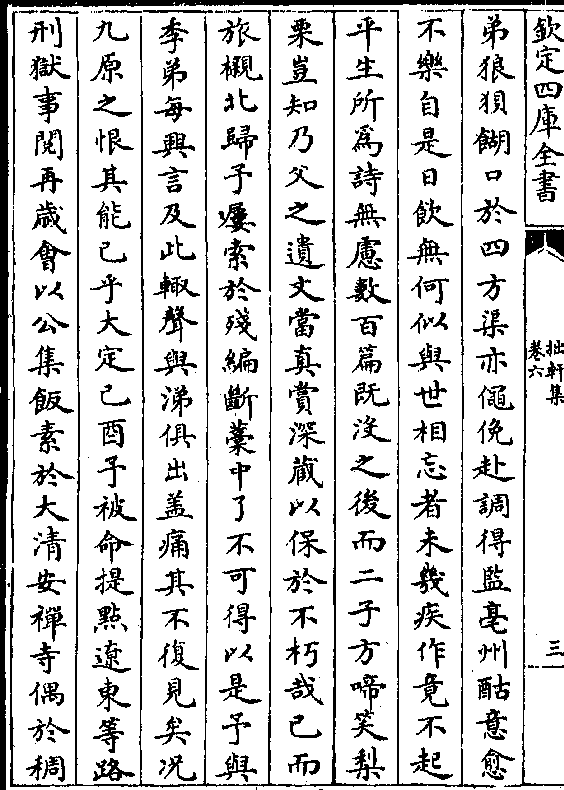 欽定四庫全書
拙軒集
卷六
三
弟狼狽餬口於四方渠亦僶俛赴調得監亳州酤意愈
不樂自是日飲無何似與世相忘者未幾疾作竟不起
平生所為詩無慮數百篇既没之後而二子方啼笑梨
栗豈知乃父之遺文當真賞深藏以保於不朽哉已而
旅櫬北歸予屢索於殘編斷藁中了不可得以是予與
季弟每興言及此輙聲與涕俱出盖痛其不復見矣况
九原之恨其能已乎大定己酉予被命提點遼東等路
刑獄事閲再歲會以公集飯素於大清安禪寺偶於稠